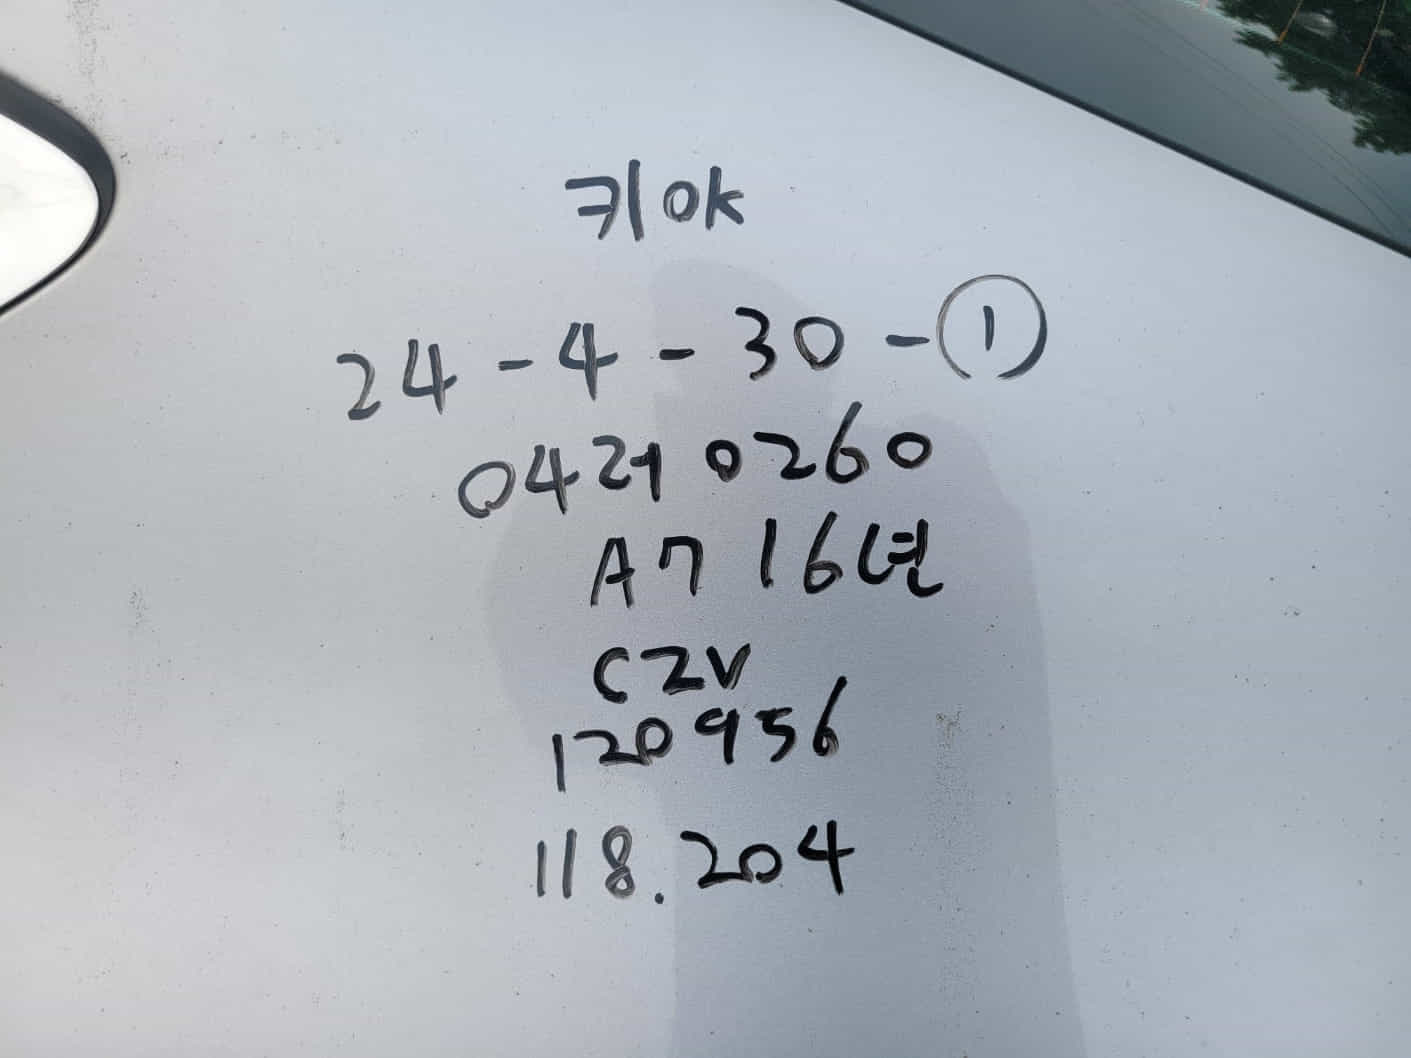 키OK
24-4-30-①
04러 0260
A7 16년
CZV
120956
118.204